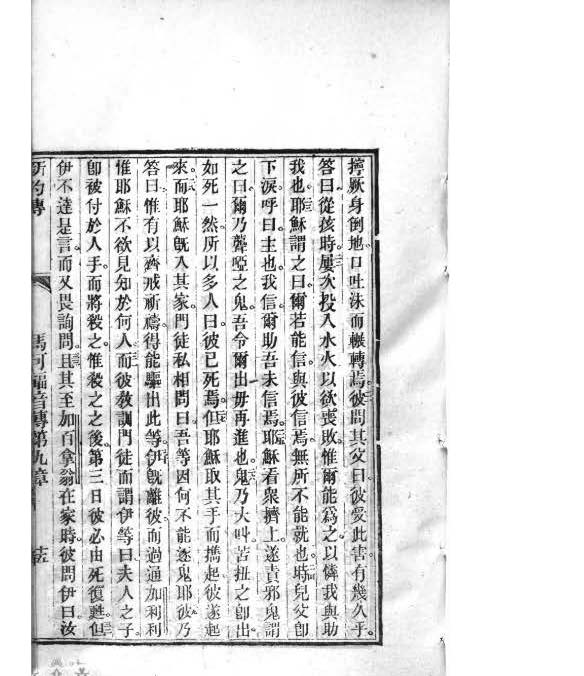 擰厥身倒地口吐沫而輾轉焉彼問其父曰彼受此害有幾久乎
答曰從孩時屢次投入水火以欲喪敗惟爾能為之以憐我與助
我也耶穌謂之曰爾若能信與彼信焉無所不能就也時兒父卽
下淚呼曰主也我信爾助吾未信焉耶穌看衆擠上遂責邪鬼謂
之曰爾乃聾啞之鬼吾令爾出毋再進也鬼乃大叫苦扭之卽出
如死一然所以多人曰彼已死焉但耶穌取其手而擕起彼遂起
來而耶穌旣入其家門徒私相問曰吾等因何不能逐鬼耶彼乃
答曰惟有以齊戒祈禱得能驅出此等伊旣離彼而過通加利利
惟耶穌不欲見知於何人而彼敎訓門徒而謂伊等曰夫人之子
卽被付於人手而將殺之惟殺之之後第三日彼必由死復甦但
伊不達是言而又畏詢問且其至加百拿翁在家時彼問伊曰汝
新約傳 馬可福音傳第九章 十五